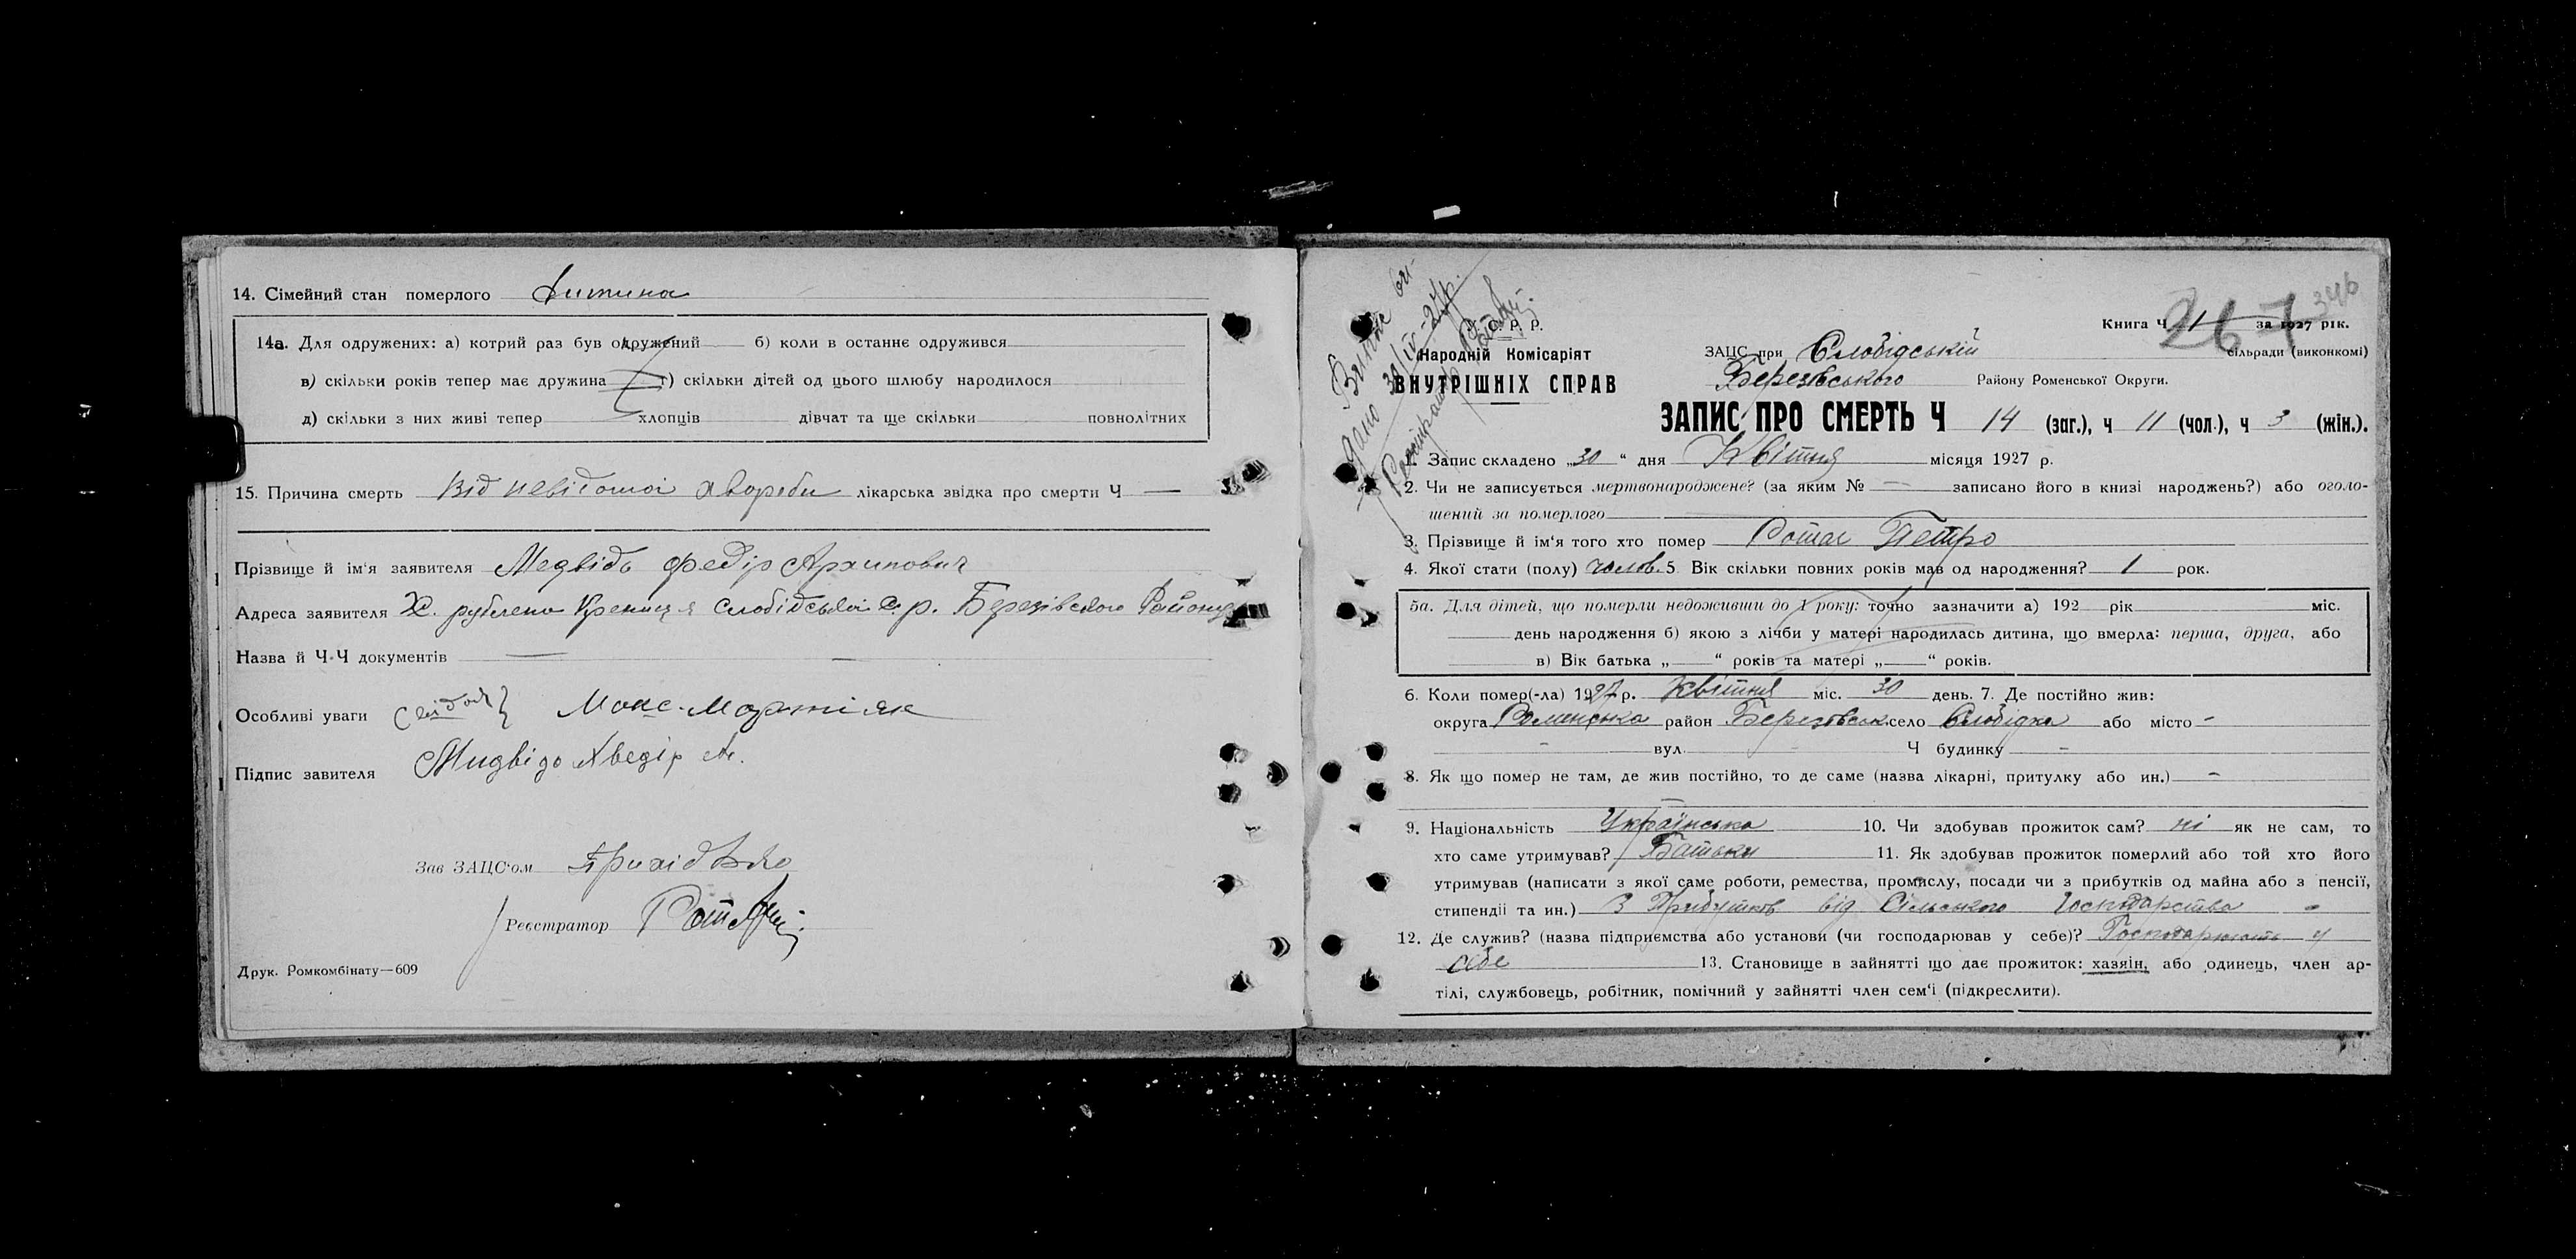 14. Сімейний стан померлого Дитина
14а. Для одружених: а) котрий раз був одружений б) коли в останнє одружився
в) скільки років тепер має дружина г) скільки дітей од цього шлюбу народилося
д) скільки з них живі тепер хлопців дівчат та ще скільки повнолітних
15. Причина смерть Від невідомої хвороби лікарська звідка про смерти Ч —
Прізвище й ім'я заявителя Медвідь Федір Архипович
Адреса заявителя Х. рублена Криниця Слобідської С. р. Березівского Району
Назва й Ч.Ч документів —
Особливі уваги
Підпис завителя Мидвідо Хведір
Зав ЗАЦС'ом
Реєстратор
Друк. Ромкомбінату—609
346
267
Р. Р.
Книга Ч 1 за 1927 рік.
Народній Комісаріят
ВНУТРІШНІХ СПРАВ
ЗАЦС при Слобідській сільради (виконкомі)
Березівського Району Роменської Округи.
ЗАПИС ПРО СМЕРТЬ Ч 14 (заг.), ч 11 (чол.), ч 3 (жін.).
1. Запис складено „30“ дня Квітня місяця 1927 р.
2. Чи не записується мертвонароджене? (за яким № — записано його в книзі народжень?) або оголо-
шений за померлого
3. Прізвище й ім'я того хто помер Ротач Петро
4. Якої стати (полу) чолов. 5 Вік скільки повних років мав од народження? 1 рок.
5а. Для дітей, що померли недоживши до 1 року: точно зазначити а) 192 рік міс.
день народження б) якою з лічби у матері народилась дитина, що вмерла: перша, друга, або
в) Вік батька „ “ років та матері „ “ років.
6. Коли помер(-ла) 1927 р. Квітня міс. 30 день. 7. Де постійно жив:
округа Роменська район Березовськ. село Слобідка або місто -
- вул. Ч будинку -
8. Як що помер не там, де жив постійно, то де саме (назва лікарні, притулку або ин.) -
9. Національність Українська 10. Чи здобував прожиток сам? ні як не сам, то
хто саме утримував? Батьки 11. Як здобував прожиток померлий або той хто його
утримував (написати з якої саме роботи, ремества, промислу, посади чи з прибутків од майна або з пенсії,
стипендії та ин.) З Прибутків від Сільського Господарства -
12. Де служив? (назва підприємства або установи (чи господарював у себе)? Господарюють у
себе 13. Становище в зайнятті що дає прожиток: хазяін, або одинець, член ар-
тілі, службовець, робітник, помічний у зайнятті член сем'і (підкреслити).